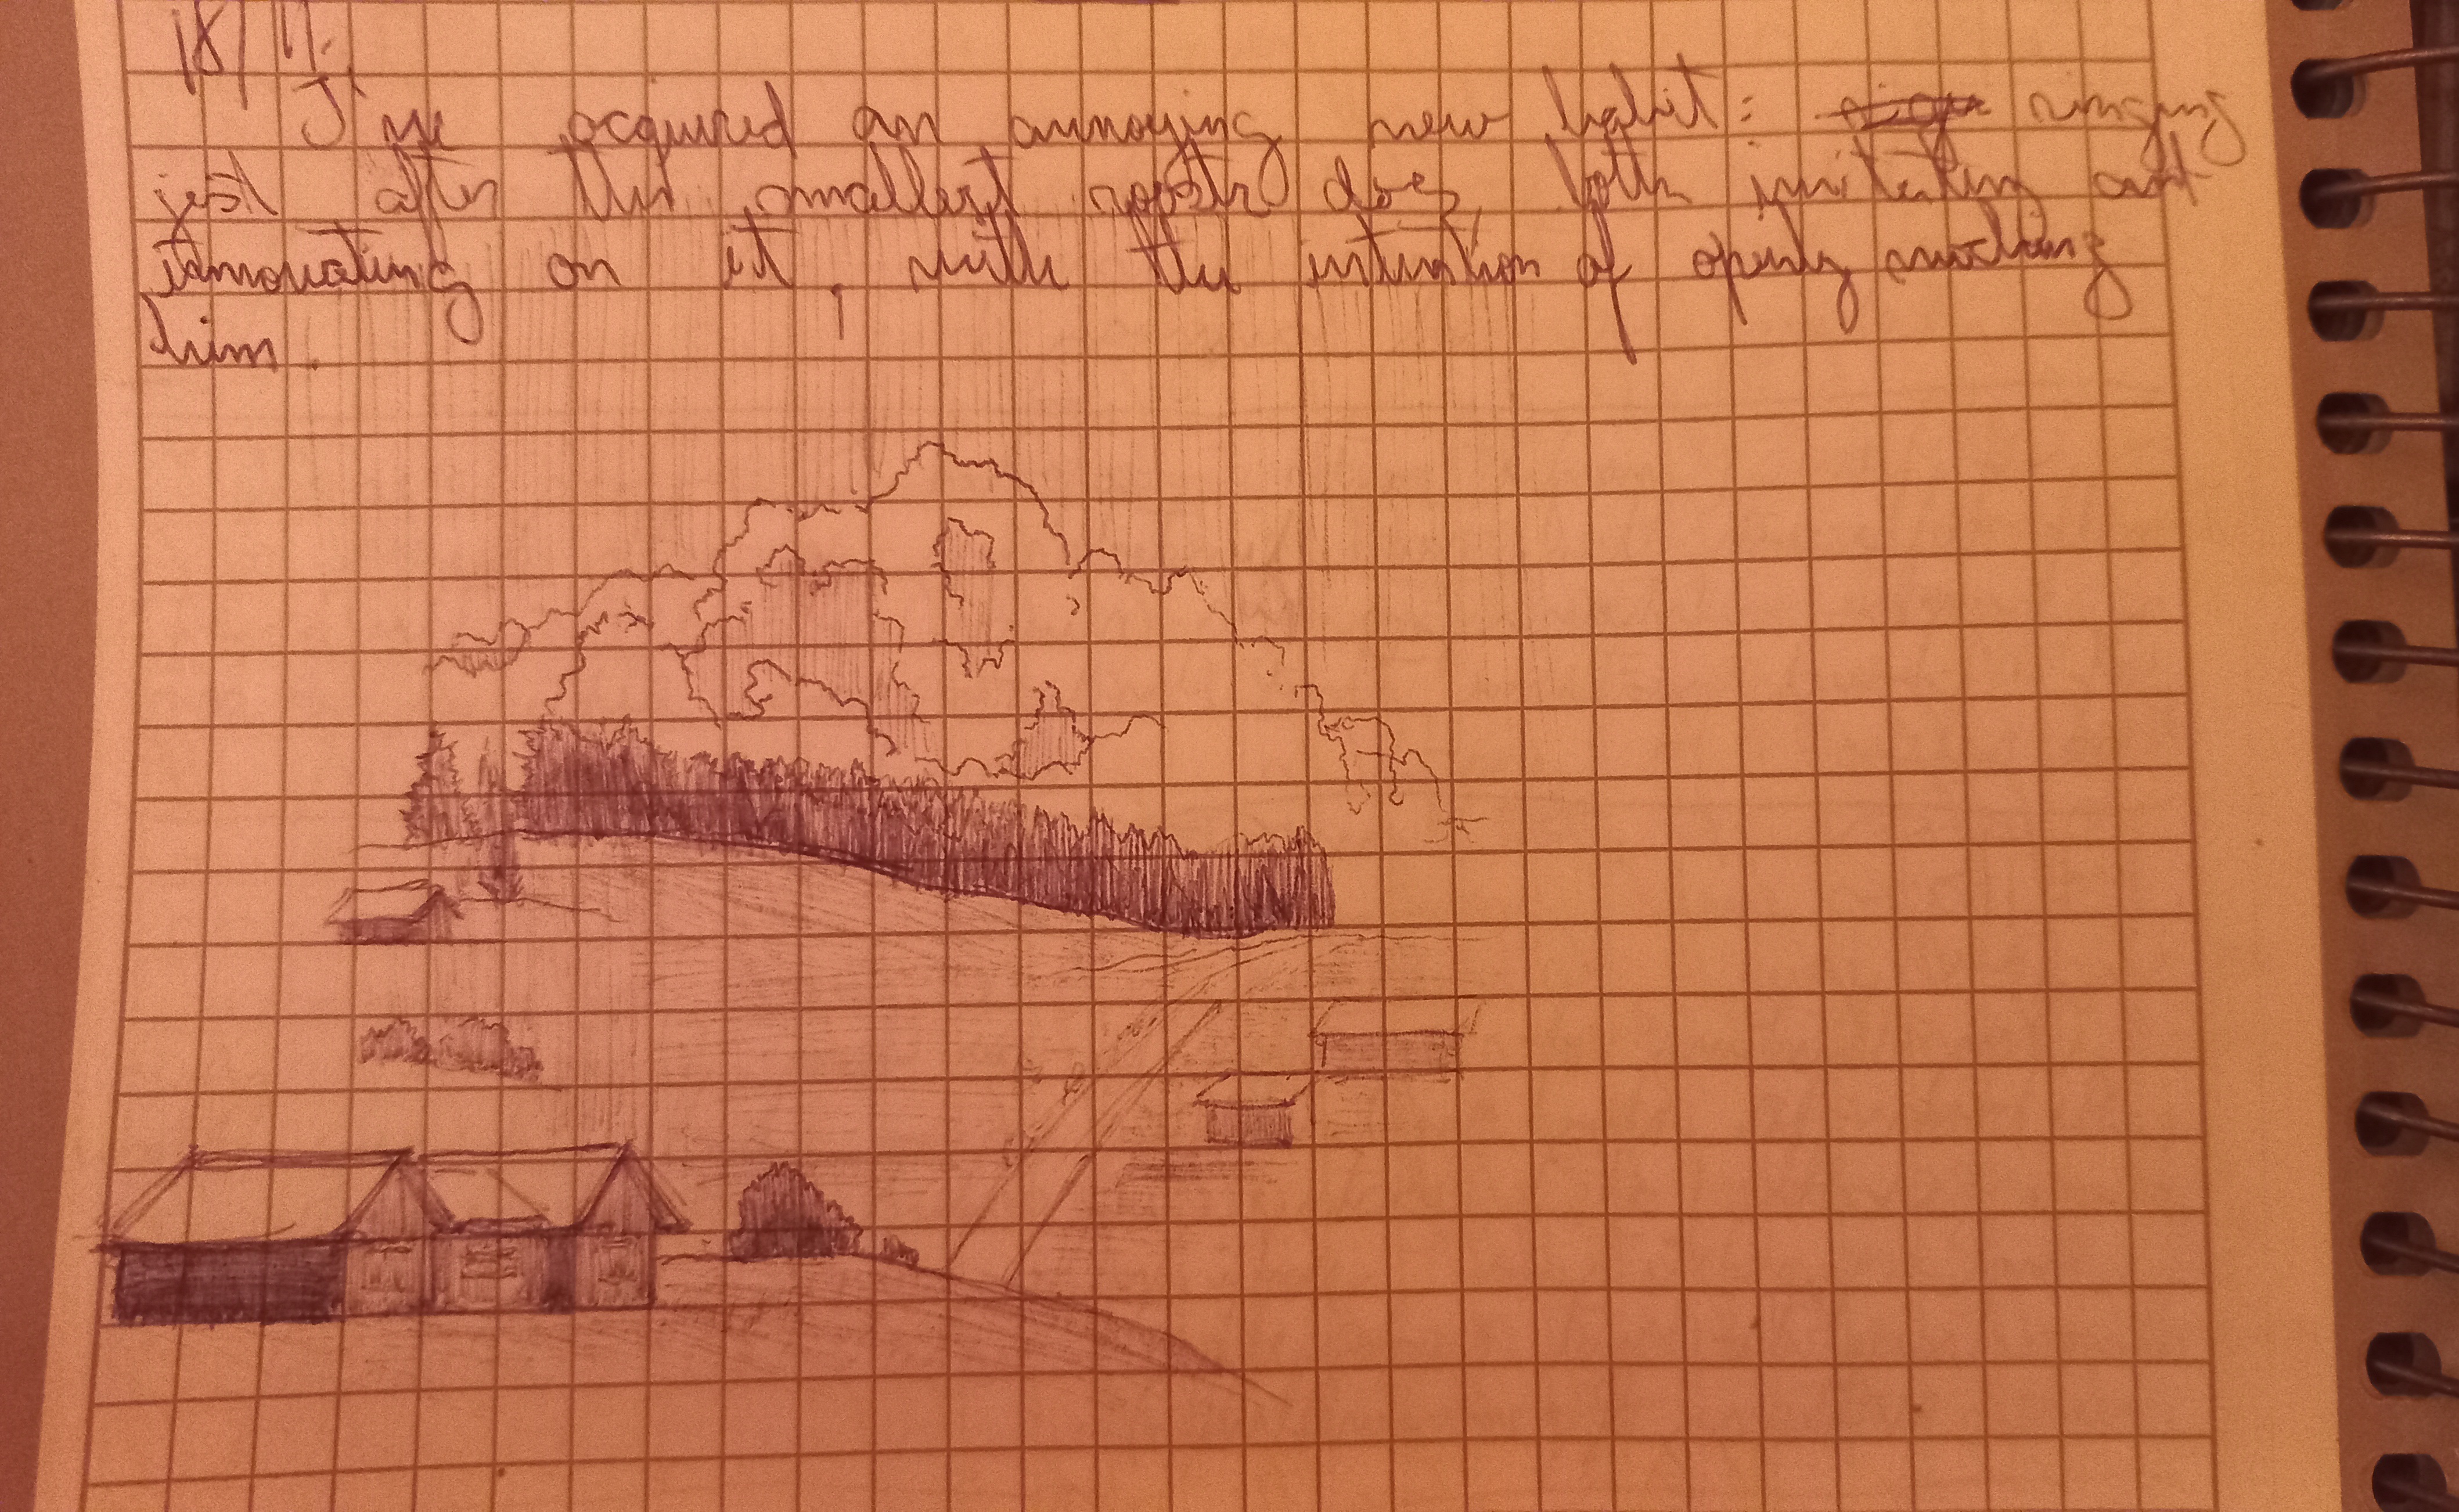 18/11.
I've acquired an annoying new habit: singing
jest after the smallest rooster does, both imitating and
innovating on it, with the intention of openly mocking
him.